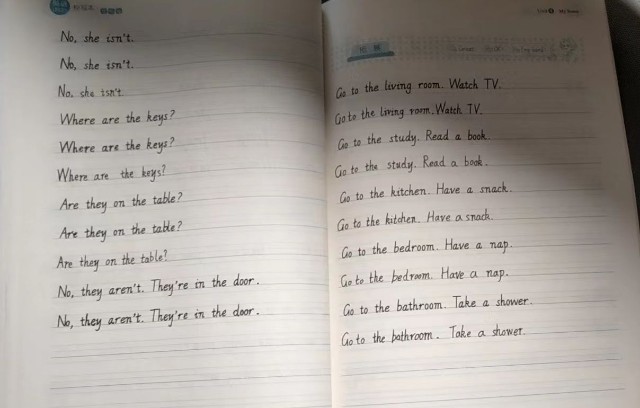 No, she isn't.
No, she isn't.
No, she isn't.
Where are the keys?
Where are the keys?
Where are the keys?
Are they on the table?
Are they on the table?
Are they on the table?
No, they aren't. They're in the door.
No, they aren't. They're in the door.
Go to the living room. Watch TV.
Go to the living room. Watch TV.
Go to the study. Read a book.
Go to the study. Read a book.
Go to the kitchen. Have a snack.
Go to the kitchen. Have a snack.
Go to the bedroom. Have a nap.
Go to the bedroom. Have a nap.
Go to the bathroom. Take a shower.
Go to the bathroom. Take a shower.